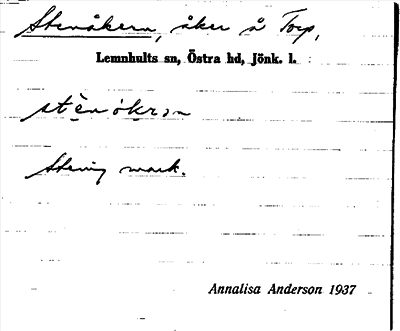 Stenåkern, åker å Torp,
Lemnhults sn, Östra hd, Jönk. l.
stènåkrɘn
Stenig mark.
Annalisa Anderson 1937